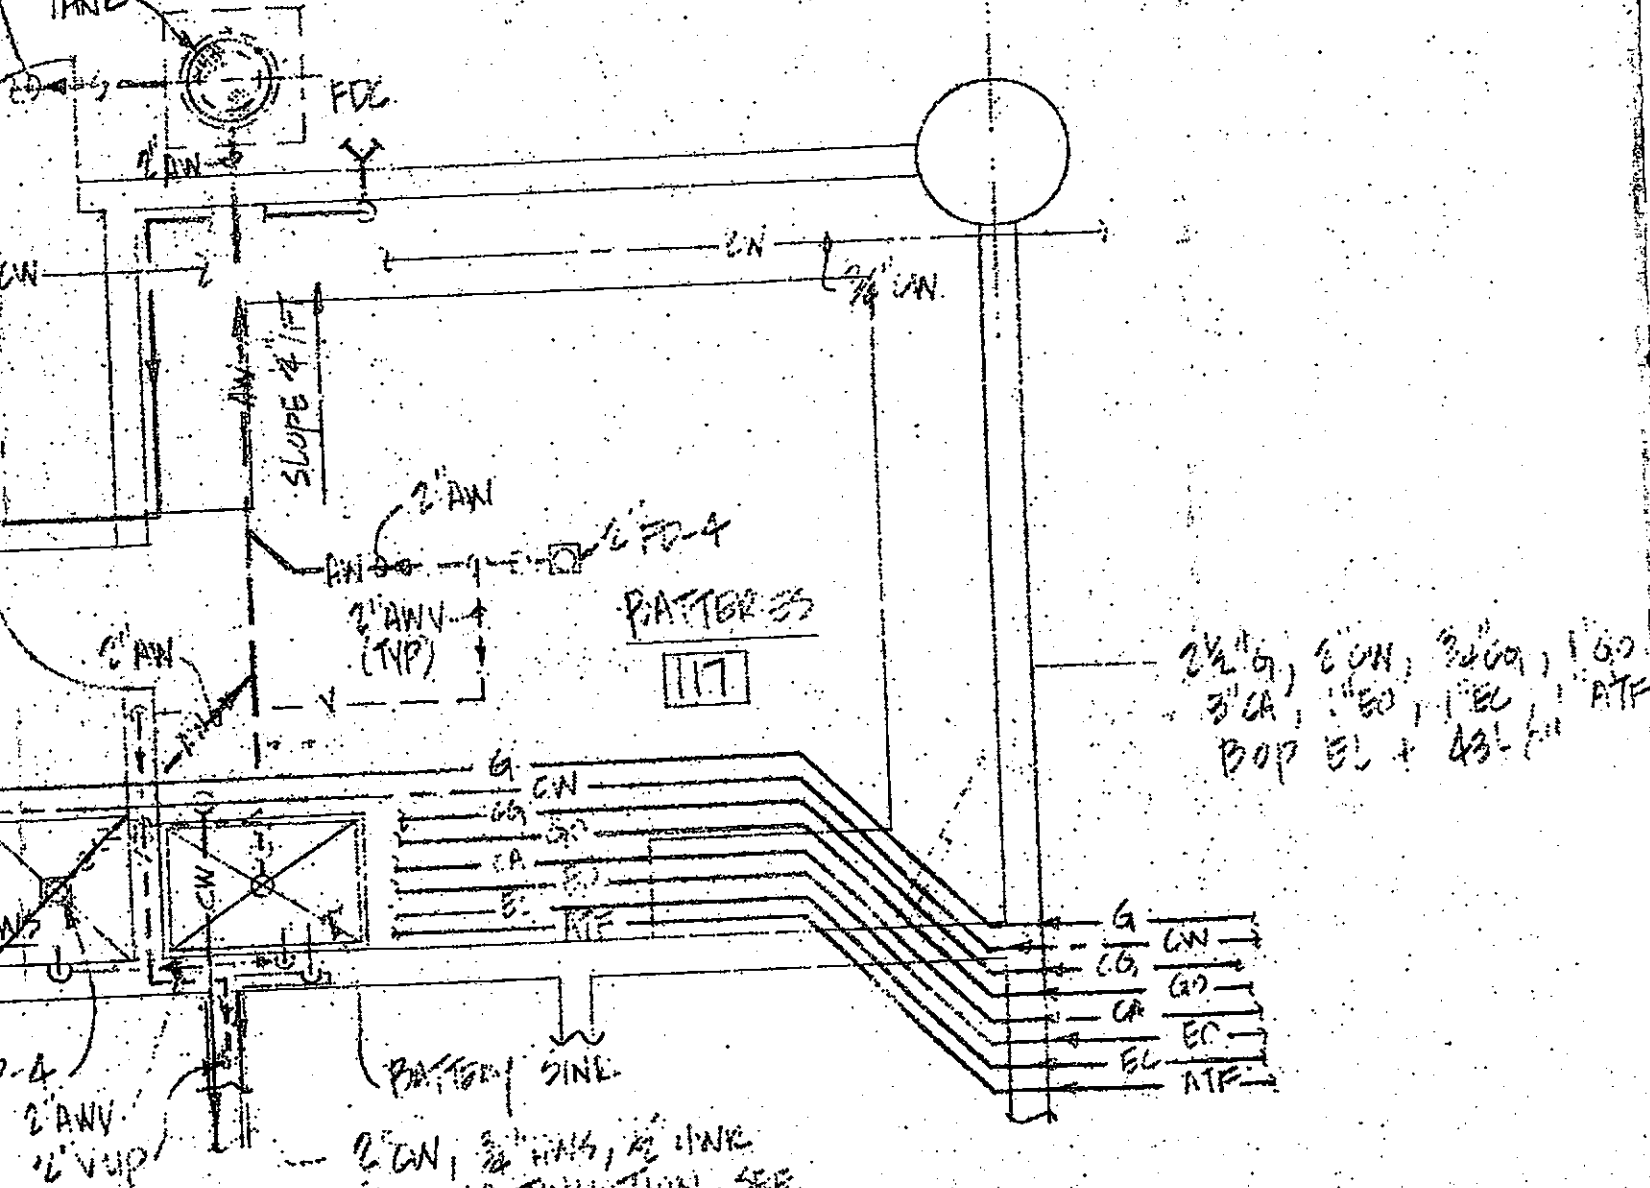 TANK
FDC
2"AW
CW
CW
3/4" CW
AW
SLOPE 1/4"/FT
2"AW
AW
2"FD-4
2"AWV
(TYP)
BATTERIES
117
2"AW
V
2½"G, 2"CW, 3/4"CG, 1"GO
3"CA, 1"EO, 1"EC, 1"ATF
BOP EL +
G
CW
CG
GO
CA
EO
EC
ATF
CW
G
CW
CG
GO
CA
EO
EC
ATF
BATTERY SINK
2"AWV
2"VUP
2"CW, 3/4"HWS, ½"HWR
SEE